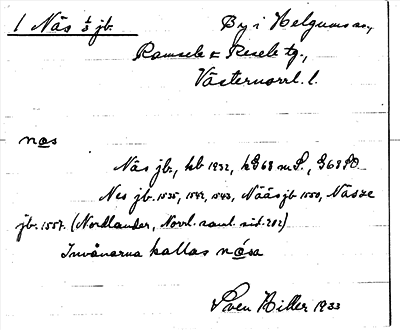 1 Näs 1/3 jb.
By i Helgums sn,
Ramsele & Resele tg.,
Västernorrl. l.
nas
Näs jb., kb 1932, kG68 m.fl., G68SO.
Nes jb. 1535, 1542, 1543, Nääs jb 1550, Näsze
jb. 1557. (Nordlander, Norrl. saml. sid. 282)
Invånarna kallas nåsa
Sven Hiller 1933